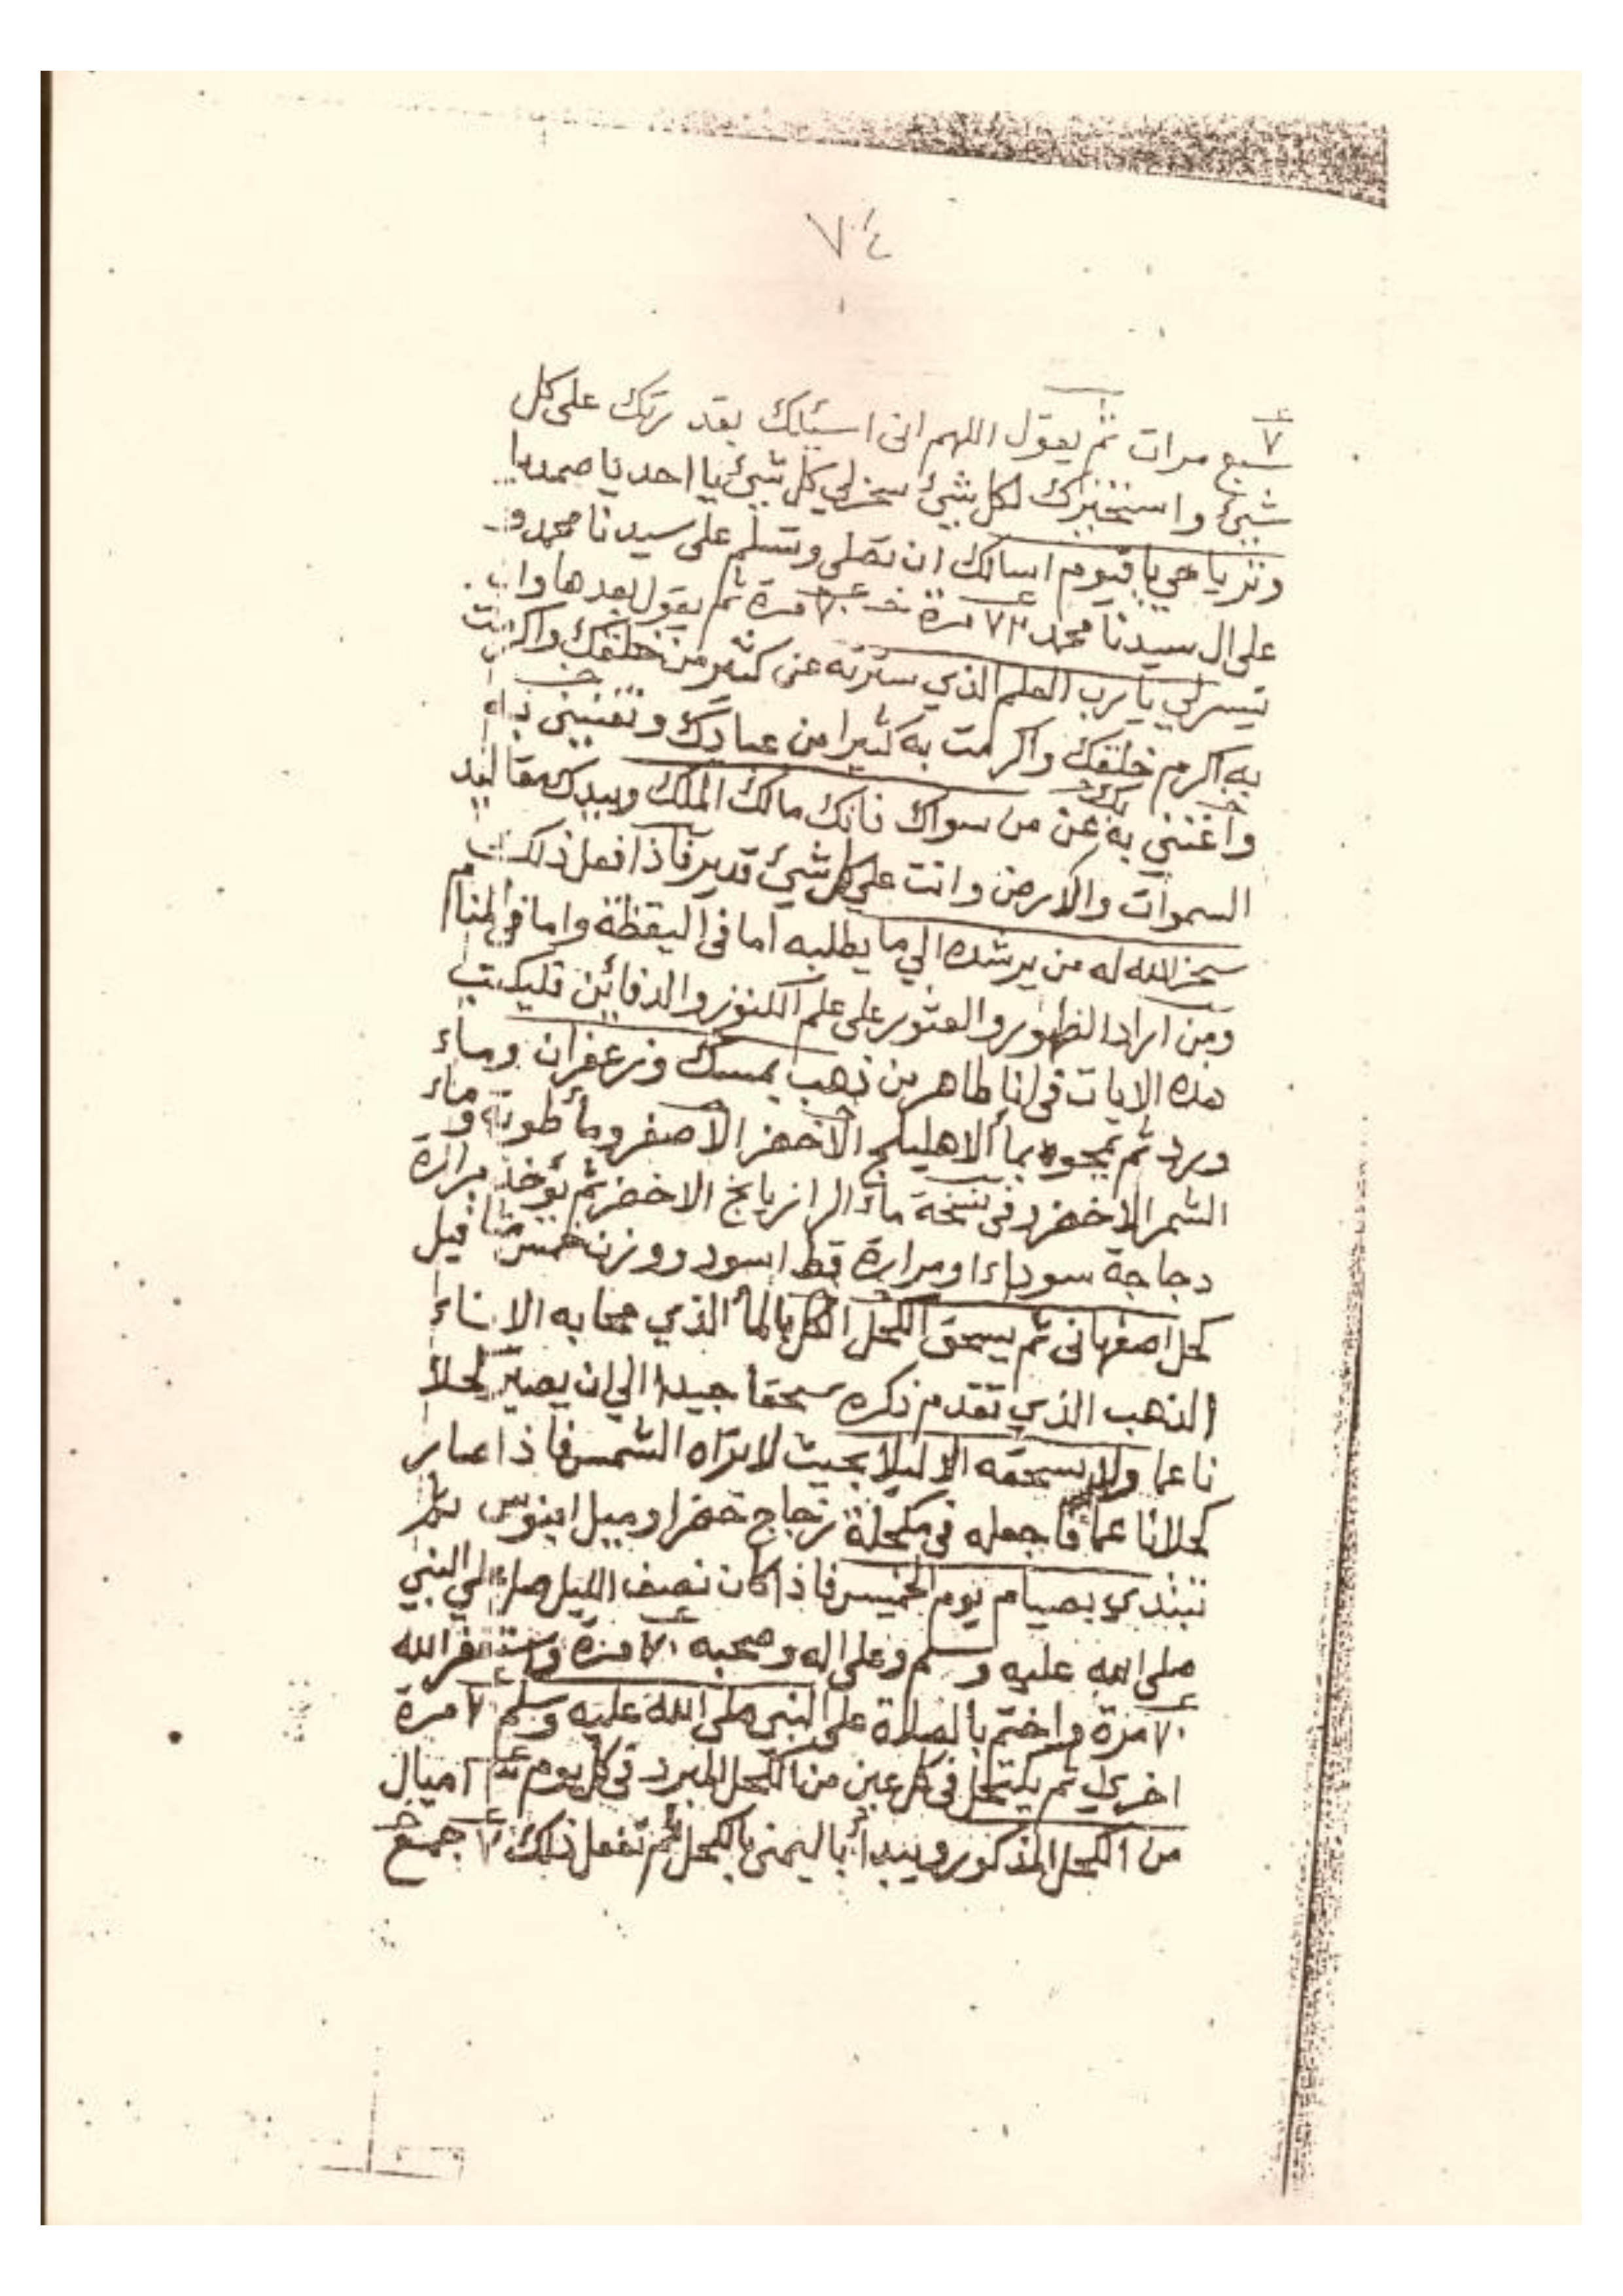 ٧٤
٧
سبع مرات ثم يقول اللهم انى اسئلك بقدرتك على كل
شيئ واستخيرك لكل شيئ سخرلي كل شيئ يا احد يا صمد يا
وتر يا حي يا قيوم اسالك ان تصلى وتسلم على سيدنا محمد و
على ال سيدنا محمد ٧٣ مرة خـ ٧٠ مرة ثم يقول بعدها وان
تيسرلي يا رب العلم الذي سترته عن كثير من خلقك واكرمت
به اكرم خلقك واكرمت به كثيرا من عبادك وتغنينى به
واغننى به عن من سواك فانك مالك الملك وبيدك مقاليد
السموات والارض وانت علي كل شيئ قدير فاذا فعل ذلك
سخر الله له من يرشده الي ما يطلبه اما فى اليقظة واما في المنام
ومن اراد الظهور والعثور على علم الكنوز والدفائن فليكتب
هذه الايات فى انا طاهر من ذهب بمسك وزعفران وماء
ورد ثم يمحوه بماٴ الاهليلج الاخضر الاصفر وماٴ طوبة وماء
الشمر الاخضر وفى نسخة ماٴ الرازيانج الاخضر ثم يؤخذ مرارة
دجاجة سوداء او مرارة قط اسود ووزن خمس مثاقيل
كحل اصفهانى ثم يسحق الكحل الكل بالماٴ الذي محا به الاناء
الذهب الذي تقدم ذكره سحقا جيدا الي ان يصير كحلا
ناعما ولا يسحقه الا ليلا بحيث لا تراه الشمس فاذا صار
كحلا ناعما فاجعله فى مكحلة زجاج خضرا وميل ابنوس ثم
تبتدي بصيام يوم الخميس فاذا كان نصف الليل صل علي النبي
صلى الله عليه وسلم وعلى اله وصحبه ٧٠ مرة وستغفر الله
٧٠ مرة واختم بالصلاة على النبي صلى الله عليه وسلم ٧٠ مرة
اخري ثم يكتحل فى كل عين من الكحل المبرد فى كل يوم اميال
من الكحل المذكور ويبدأ باليمنى بالكحل ثم تفعل ذلك ٧ جمع